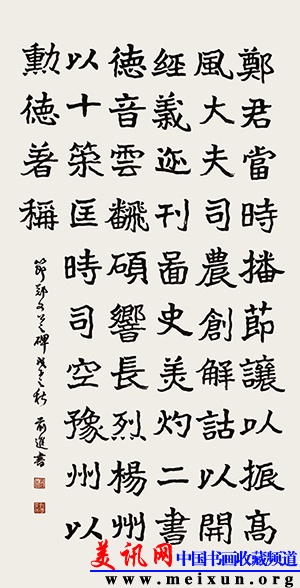 鄭君當時播節讓以振高
風大夫司農創解詁以開
經義迹刊啚史美灼二書
德音雲飜碩響長烈楊州
以十筞匡時司空豫州以
勳德著稱
節鄭文公碑 秋 進書
美讯网
中国书画收藏频道
www.meixun.org